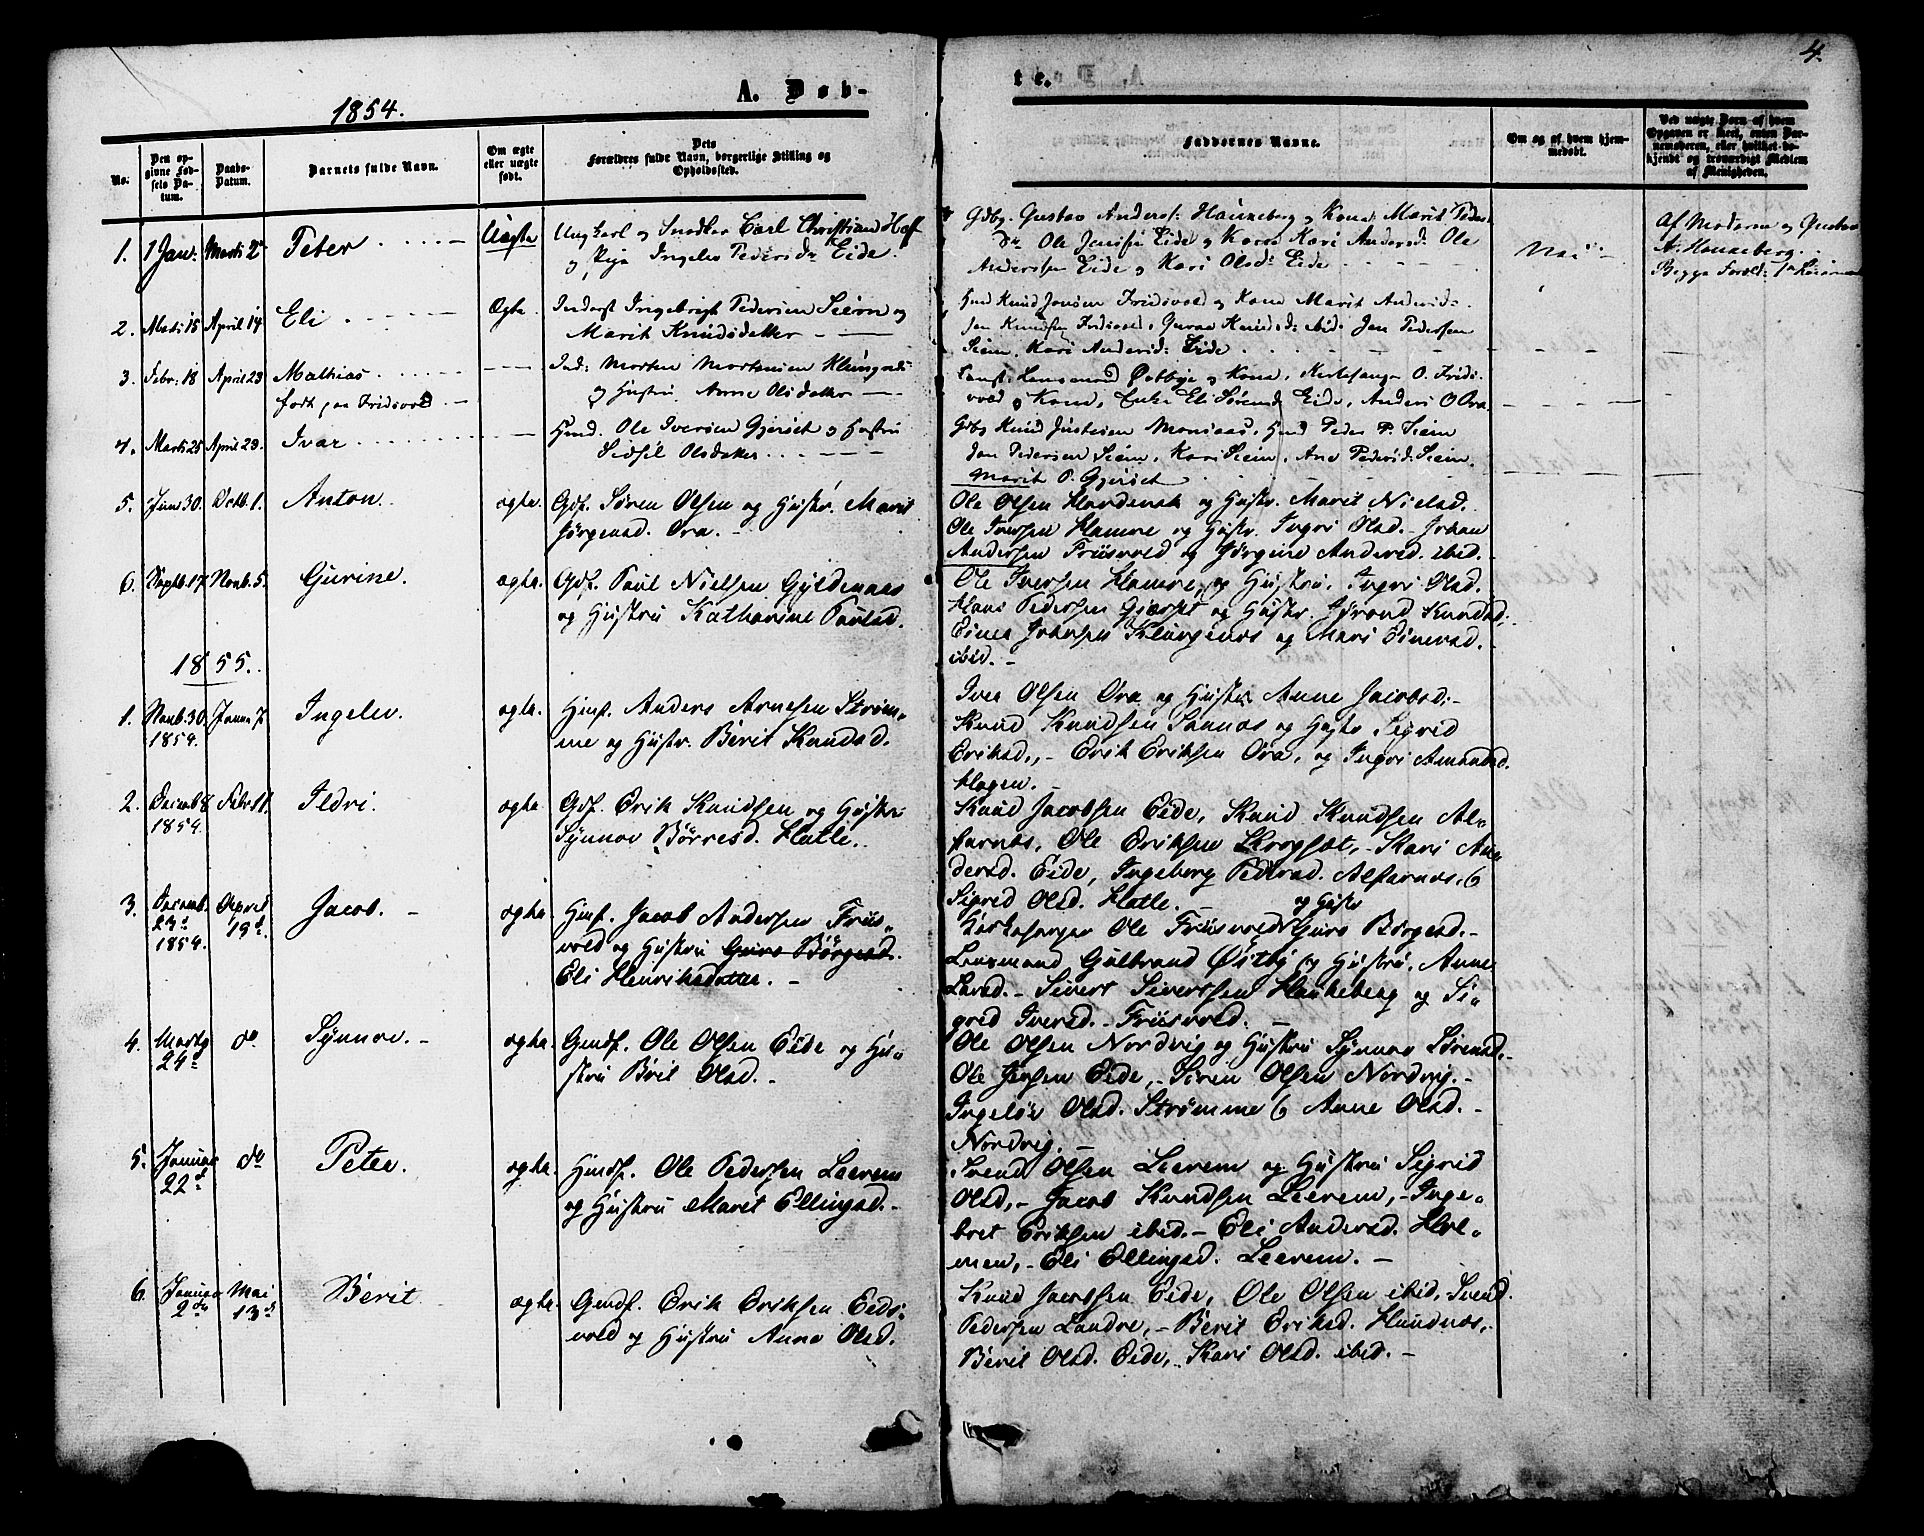 4.
1854.
A. Døb-
te.
No.
Den opgivne Fødsels Datum.
Daabs-Datum.
Barnets fulde Navn.
Om ægte eller uægte født.
Dets Forældres fulde Navn, borgerlige Stilling og Opholdssted.
Faddernes Navne.
Om og af hvem hjemmedøbt.
Ved uægte Børn af hvem Opgaven er skeet, enten Barnemoderen, eller hvilket bekjendt og troværdigt Medlem af Menigheden.
1. 1 Jan: Marts 25 Peter Uægte
Ungkarl og Snedker Carl Christian
og Pige Ingelev Pedersd: Eide
Gdbg. Gustav Anders: Hanneberg og Kone Marit Peders
Ole Jensen Eide og Kone Kari Andersd: Ole
Andersen Eide og Kari Olsd: Eide
Nei
Af Moderen og Gustav
A. Hanneberg.
Begge Foræld: 1ste
2. Marts 15 April 14 Eli Ægte
Inderst Ingebrigt Pedersen Seim og
Marit Knudsdatter
Knud Jonsen Fridsvold og Kone Marit Andersd:
Jon Knudsen Fridsvold, Guroe Knudsd: ibid. Jon Pedersen
Seim. Kari Andersd: Eide
3. Febr: 18 April 23 Mathias
født paa Fridsvold
Ind: Morten Mortensen Klungnæs
og Hustru Anne Olsdatter
Lensmand Østbye og Kone, Kirkesanger O. Frids
vold og Kone, Enke Eli Sørensd: Eide, Anders O Ora.
4. Marts 25 April 23. Ivar
Hmd. Ole Iversen Gjersæt og Hustru
Sidsel Olsdatter
Gdbg Knud Justesen Monsaas, Hmd Peder P. Seim
Jon Pedersen Seim, Kari Seim, Ane Pedersd: Seim.
Marit O. Gjersæt
5. Juni 30. Octb. 1. Anton. ægte.
Gdf. Søren Olsen og Hustr. Marit
Jørgensd. Ora.
Ole Olsen Hardenak og Hustr. Marit Nielsd.
Ole Iversen Hamre og Hustr. Ingri Olsd. Johan
Andersen Friisvold og Jørgine Andersd. ibid.
6. Septb. 17. Novb. 5. Gurine. ægte.
Gdf. Paul Nielsen Gyldenaas
og Hustru Katharine Paulsd.
Ole Iversen Hamre, og Hustru. Ingri Olsd.
Hans Pedersen Gjersæt og Hustr. Jørond Knudsd.
Einer Johnsen Klungenes og Mari Einersd.
ibid.
1855.
1. Novb. 30. 1854. Janr. 7. Ingelev. ægte.
Hmf. Anders Arnesen Strøm-
me og Hustr. Berit Knudsd.
Iver Olsen Ora og Hustr. Anne Jacobsd.
Knud Knudsen Sannes og Hustr Sigrid
Eriksd., Erik Eriksen Ora, og Ingri Amundsd.
Hagen.
2. Decmb 8 1854. Febr. 11. Ildri. ægte.
Gdf. Erik Knudsen og Hustru
Synnov Børresd. Hatle.
Knud Jacobsen Eide, Knud Knudsen Al-
farnæs, Ole Eriksen Krogsæt, Kari An-
dersd. Eide, Ingeborg Pedersd. Alfarnæs, &
Sigrid Olsd. Hatle.
3. Decemb. 23d 1854. April 19d. Jacob. ægte.
Hmf. Jacob Andersen Friis-
vold og Hustru Guro Børgesd.
Eli Henriksdatter.
Kirkesanger Ole Friisvold og Hustr Guro Børgesd.
Lensmand Gulbrand Østby og Hustru, Anne
Larsd. Sivert Sivertsen Hankeberg og Si-
grid Iversd. Friisvold.
4. Marts 24d do Synnov. ægte.
Gmdf. Ole Olsen Eide og Hu-
stru Brit Olsd.
Ole Olsen Nordvig og Hustru Synnov Sørensd.
Ole Jensen Eide, Søren Olsen Nordvig.
Ingeløv Olsd. Strømme & Anne Olsd.
Nordvig.
5. Januar 22d do Peter. ægte.
Hmdf. Ole Pedersen Leerem
og Hustru Marit Ellingsd.
Svend Olsen Leerem og Hustru Sigrid
Olsd., Jacob Knudsen Leerem, Inge-
bret Eriksen ibid. Eli Andersd. Hol-
men, Eli Ellingsd. Leerem.
6. Januar 2den Mai 13d Berit ægte.
Gmdf. Erik Eriksen Eids-
vold og Hustru Anne Olsd.
Knud Jacobsen Eide, Ole Olsen ibid, Svend
Pedersen Landre, Berit Eriksd. Hundnæs,
Berit Olsd. Eide, Kari Olsd. ibid.